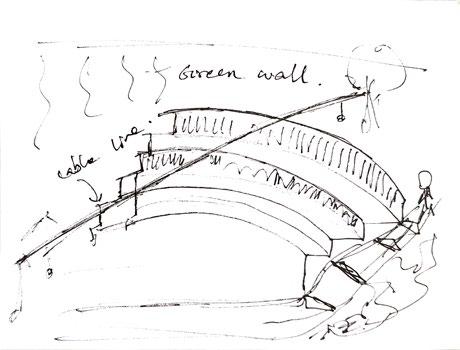 Green wall.
cable line.